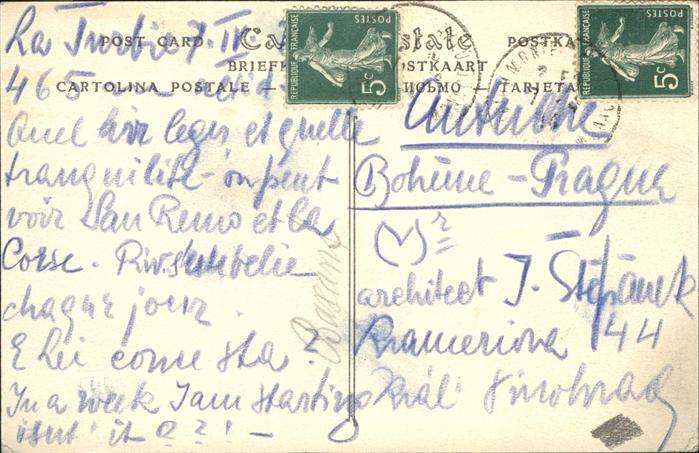 La Turbie 7. IV
465
POST CARD Carte Postale POSTKA
POSTKAART
CARTOLINA POSTALE TARJETA
REPUBLIQUE FRANÇAISE
POSTES
5c
REPUBLIQUE FRANÇAISE
POSTES
5c
Quel air leger et quelle
tranquilité - on peut
voir San Remo et la
Corse.
chaque jour.
E Lei come sta?
In a week I am starting
isn't it ?!
Autriche
Bohême - Prague
architect J. Štěpánek
Krameriova 44
Král Vinohrady